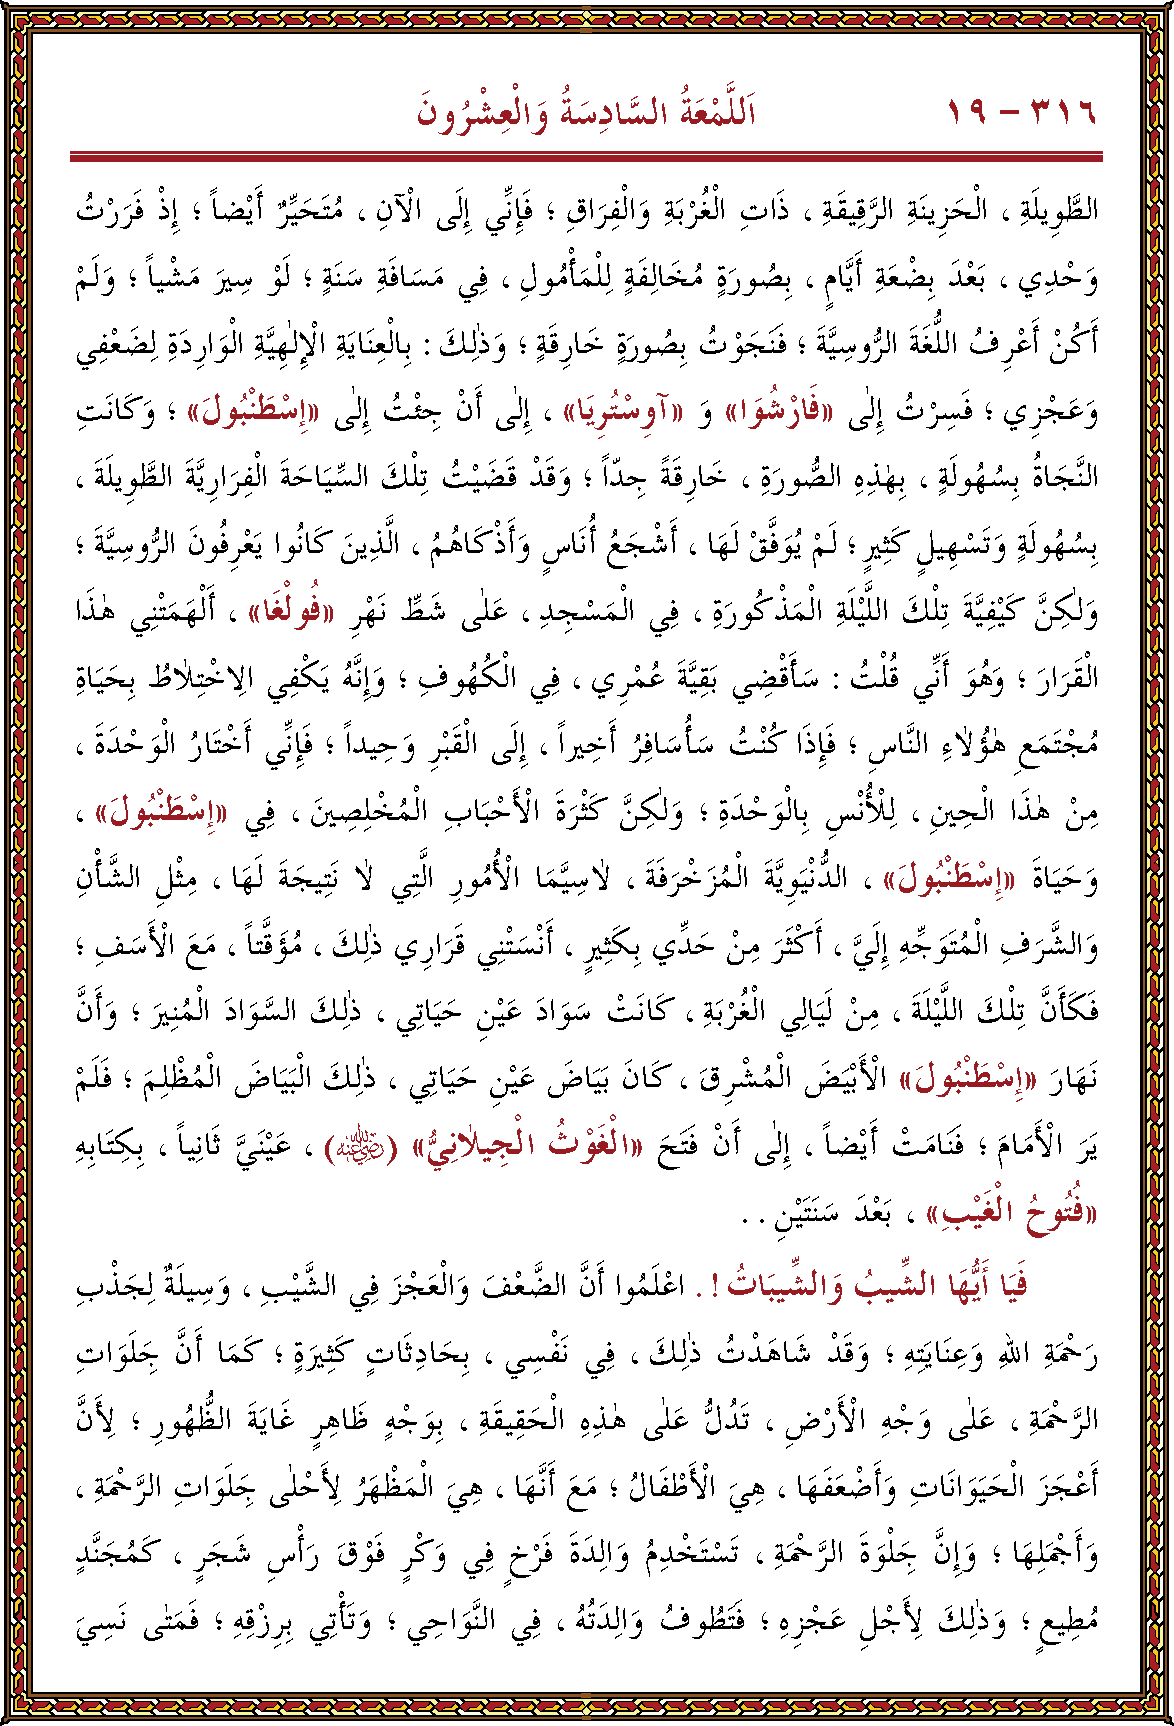 ٣١٦ – ١٩ اَللَّمْعَةُ السَّادِسَةُ وَالْعِشْرُونَ
الطَّوِيلَةِ ، الْحَزِينَةِ الرَّقِيقَةِ ، ذَاتِ الْغُرْبَةِ وَالْفَرِاقِ ؛ فَإِنِّي إِلَى الْآنِ ، مُتَحَيِّرٌ أَيْضاً ؛ إِذْ فَرَرْتُ
وَحْدِي ، بَعْدَ بِضْعَةِ أَيَّامٍ ، بِصُورَةٍ مُخَالِفَةٍ لِلْمَأْمُولِ ، فِي مَسَافَةِ سَنَةٍ ؛ لَوْ سِيرَ مَشْياً ؛ وَلَمْ
أَكُنْ أَعْرِفُ اللُّغَةَ الرُّوسِيَّةَ ؛ فَنَجَوْتُ بِصُورَةٍ خَارِقَةٍ ؛ وَذٰلِكَ : بِالْعِنَايَةِ الْإِلٰهِيَّةِ الْوَارِدَةِ لِضَعْفِي
وَعَجْزِي ؛ فَسِرْتُ إِلٰى «فَارْشُوَا» وَ «آوِسْتُرِيَا» ، إِلٰى أَنْ جِئْتُ إِلٰى «إِسْطَنْبُولَ» ؛ وَكَانَتِ
النَّجَاةُ بِسُهُولَةٍ ، بِهٰذِهِ الصُّورَةِ ، خَارِقَةً جِدّاً ؛ وَقَدْ قَضَيْتُ تِلْكَ السِّيَاحَةَ الْفِرَارِيَّةَ الطَّوِيلَةَ ،
بِسُهُولَةٍ وَتَسْهِيلٍ كَثِيرٍ ؛ لَمْ يُوَفَّقْ لَهَا ، أَشْجَعُ أُنَاسٍ وَأَذْكَاهُمُ ، الَّذِينَ كَانُوا يَعْرِفُونَ الرُّوسِيَّةَ ؛
وَلٰكِنَّ كَيْفِيَّةَ تِلْكَ اللَّيْلَةِ الْمَذْكُورَةِ ، فِي الْمَسْجِدِ ، عَلٰى شَطِّ نَهْرِ «فُولْغَا» ، أَلْهَمَتْنِي هٰذَا
الْقَرَارَ ؛ وَهُوَ أَنِّي قُلْتُ : سَأَقْضِي بَقِيَّةَ عُمْرِي ، فِي الْكُهُوفِ ؛ وَإِنَّهُ يَكْفِي الِاخْتِلَاطُ بِحَيَاةِ
مُجْتَمَعِ هٰؤُلَاءِ النَّاسِ ؛ فَإِذَا كُنْتُ سَأُسَافِرُ أَخِيراً ، إِلَى الْقَبْرِ وَحِيداً ؛ فَإِنِّي أَخْتَارُ الْوَحْدَةَ ،
مِنْ هٰذَا الْحِينِ ، لِلْأُنْسِ بِالْوَحْدَةِ ؛ وَلٰكِنَّ كَثْرَةَ الْأَحْبَابِ الْمُخْلِصِينَ ، فِي «إِسْطَنْبُولَ» ،
وَحَيَاةَ «إِسْطَنْبُولَ» ، الدُّنْيَوِيَّةَ الْمُزَخْرَفَةَ ، لَاسِيَّمَا الْأُمُورِ الَّتِي لَا نَتِيجَةَ لَهَا ، مِثْلِ الشَّأْنِ
وَالشَّرَفِ الْمُتَوَجِّهِ إِلَيَّ ، أَكْثَرَ مِنْ حَدِّي بِكَثِيرٍ ، أَنْسَتْنِي قَرَارِي ذٰلِكَ ، مُؤَقَّتاً ، مَعَ الْأَسَفِ ؛
فَكَأَنَّ تِلْكَ اللَّيْلَةَ ، مِنْ لَيَالِي الْغُرْبَةِ ، كَانَتْ سَوَادَ عَيْنِ حَيَاتِي ، ذٰلِكَ السَّوَادَ الْمُنِيرَ ؛ وَأَنَّ
نَهَارَ «إِسْطَنْبُولَ» الْأَبْيَضَ الْمُشْرِقَ ، كَانَ بَيَاضَ عَيْنِ حَيَاتِي ، ذٰلِكَ الْبَيَاضَ الْمُظْلِمَ ؛ فَلَمْ
يَرَ الْأَمَامَ ؛ فَنَامَتْ أَيْضاً ، إِلٰى أَنْ فَتَحَ «الْغَوْثُ الْجِيلَانِيُّ» (رضي الله عنه) ، عَيْنَيَّ ثَانِياً ، بِكِتَابِهِ
«فُتُوحُ الْغَيْبِ» ، بَعْدَ سَنَتَيْنِ . .
فَيَا أَيُّهَا الشِّيبُ وَالشِّيبَاتُ ! . اعْلَمُوا أَنَّ الضَّعْفَ وَالْعَجْزَ فِي الشَّيْبِ ، وَسِيلَةٌ لِجَذْبِ
رَحْمَةِ اللهِ وَعِنَايَتِهِ ؛ وَقَدْ شَاهَدْتُ ذٰلِكَ ، فِي نَفْسِي ، بِحَادِثَاتٍ كَثِيرَةٍ ؛ كَمَا أَنَّ جِلَوَاتِ
الرَّحْمَةِ ، عَلٰى وَجْهِ الْأَرْضِ ، تَدُلُّ عَلٰى هٰذِهِ الْحَقِيقَةِ ، بِوَجْهٍ ظَاهِرٍ غَايَةَ الظُّهُورِ ؛ لِأَنَّ
أَعْجَزَ الْحَيَوَانَاتِ وَأَضْعَفَهَا ، هِيَ الْأَطْفَالُ ؛ مَعَ أَنَّهَا ، هِيَ الْمَظْهَرُ لِأَحْلٰى جِلَوَاتِ الرَّحْمَةِ ،
وَأَجْمَلِهَا ؛ وَإِنَّ جِلْوَةَ الرَّحْمَةِ ، تَسْتَخْدِمُ وَالِدَةَ فَرْخٍ فِي وَكْرٍ فَوْقَ رَأْسِ شَجَرٍ ، كَمُجَنَّدٍ
مُطِيعٍ ؛ وَذٰلِكَ لِأَجْلِ عَجْزِهِ ؛ فَتَطُوفُ وَالِدَتُهُ ، فِي النَّوَاحِي ؛ وَتَأْتِي بِرِزْقِهِ ؛ فَمَتٰى نَسِيَ